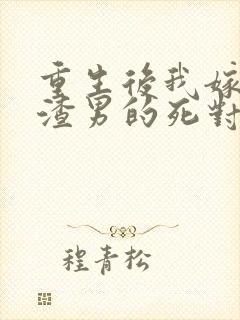 重生後我嫁
渣男的死對
程青松